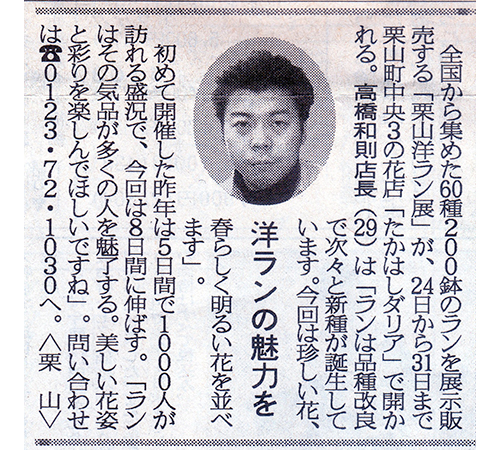 全国から集めた60種200鉢のランを展示販
売する「栗山洋ラン展」が、24日から31日まで
栗山町中央3の花店「たかはしダリア」で開か
れる。高橋和則店長(29)は「ランは品種改良
で次々と新種が誕生して
います。今回は珍しい花、
洋ランの魅力を
春らしく明るい花を並べ
ます」。
初めて開催した昨年は5日間で1000人が
訪れる盛況で、今回は8日間に伸ばす。「ラン
はその気品が多くの人を魅了する。美しい花姿
と彩りを楽しんでほしいですね」。問い合わせ
は☎0123・72・1030へ。〈栗 山〉